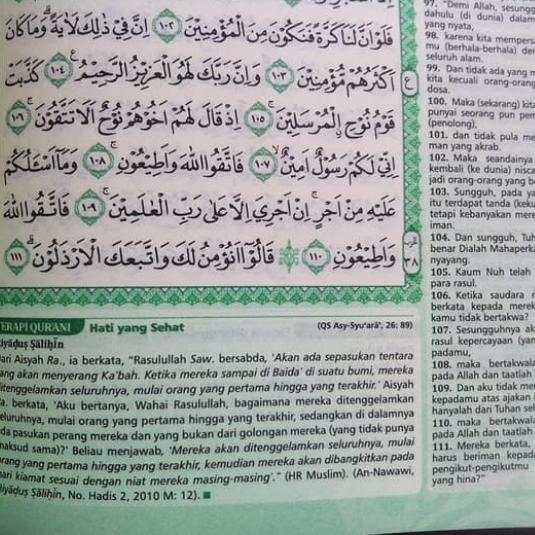 فَلَوْ اَنَّ لَنَا كَرَّةً فَنَكُوْنَ مِنَ الْمُؤْمِنِيْنَ ١٠٢ اِنَّ فِيْ ذٰلِكَ لَاٰيَةً ۗوَمَا كَانَ
اَكْثَرُهُمْ مُّؤْمِنِيْنَ ١٠٣ وَاِنَّ رَبَّكَ لَهُوَ الْعَزِيْزُ الرَّحِيْمُ ࣖ ١٠٤ كَذَّبَتْ
قَوْمُ نُوْحِ ِۨالْمُرْسَلِيْنَ ۚ ١٠٥ اِذْ قَالَ لَهُمْ اَخُوْهُمْ نُوْحٌ اَلَا تَتَّقُوْنَ ۚ ١٠٦
اِنِّيْ لَكُمْ رَسُوْلٌ اَمِيْنٌ ۙ ١٠٧ فَاتَّقُوا اللّٰهَ وَاَطِيْعُوْنِ ۚ ١٠٨ وَمَآ اَسْـَٔلُكُمْ
عَلَيْهِ مِنْ اَجْرٍ ۚاِنْ اَجْرِيَ اِلَّا عَلٰى رَبِّ الْعٰلَمِيْنَ ۚ ١٠٩ فَاتَّقُوا اللّٰهَ
وَاَطِيْعُوْنِ ١١٠ ۞ قَالُوْٓا اَنُؤْمِنُ لَكَ وَاتَّبَعَكَ الْاَرْذَلُوْنَ ۗ ١١١
ع
٣٨
TERAPI QUR'ANI Hati yang Sehat (QS Asy-Syu'arā', 26: 89)
Riyāḍuṣ Ṣāliḥīn
Dari Aisyah Ra., ia berkata, "Rasulullah Saw. bersabda, 'Akan ada sepasukan tentara
yang akan menyerang Ka'bah. Ketika mereka sampai di Baida' di suatu bumi, mereka
ditenggelamkan seluruhnya, mulai orang yang pertama hingga yang terakhir.' Aisyah
Ra. berkata, 'Aku bertanya, Wahai Rasulullah, bagaimana mereka ditenggelamkan
seluruhnya, mulai orang yang pertama hingga yang terakhir, sedangkan di dalamnya
ada pasukan perang mereka dan yang bukan dari golongan mereka (yang tidak punya
maksud sama)?' Beliau menjawab, 'Mereka akan ditenggelamkan seluruhnya, mulai
orang yang pertama hingga yang terakhir, kemudian mereka akan dibangkitkan pada
hari kiamat sesuai dengan niat mereka masing-masing'." (HR Muslim). (An-Nawawi,
Riyāḍuṣ Ṣāliḥīn, No. Hadis 2, 2010 M: 12).
97. "Demi Allah, sesungg
dahulu (di dunia) dalam
yang nyata,
98. karena kita mempers
mu (berhala-berhala) de
seluruh alam.
99. Dan tidak ada yang m
kita kecuali orang-orang
dosa.
100. Maka (sekarang) kita
punyai seorang pun pem
penolong),
101. dan tidak pula me
man yang akrab.
102. Maka seandainya
kembali (ke dunia) nisca
jadi orang-orang yang be
103. Sungguh, pada ya
itu terdapat tanda (keku
tetapi kebanyakan mere
iman.
104. Dan sungguh, Tuh
benar Dialah Mahaperka
nyayang.
105. Kaum Nuh telah
para rasul.
106. Ketika saudara m
berkata kepada mereka
kamu tidak bertakwa?
107. Sesungguhnya ak
rasul kepercayaan (yang
padamu,
108. maka bertakwala
pada Allah dan taatlah
109. Dan aku tidak me
kepadamu atas ajakan i
hanyalah dari Tuhan sel
110. maka bertakwala
pada Allah dan taatlah
111. Mereka berkata,
harus beriman kepad
pengikut-pengikutmu
yang hina?"